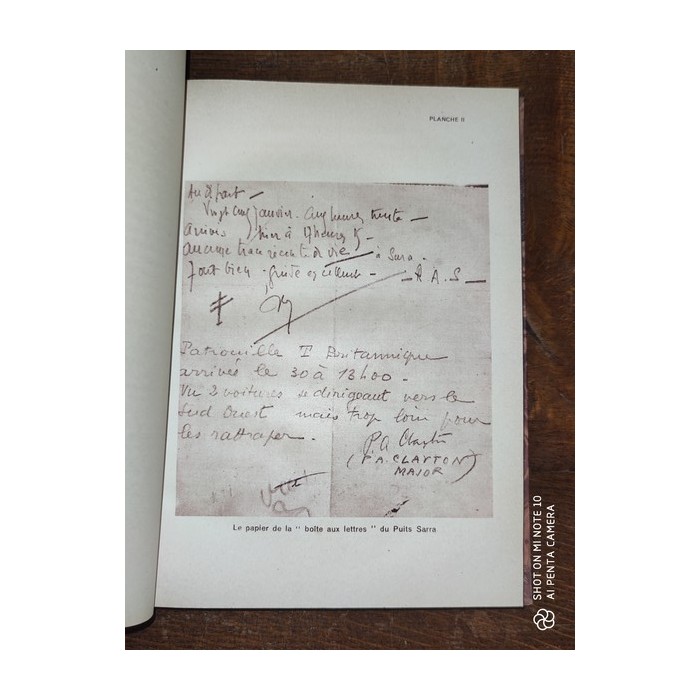 PLANCHE II
Au départ —
Vingt cinq janvier. cinq heures trente —
Arrivés hier à 17 heures 15 —
Aucune trace récente de vie à Sara.
Tout bien. guide excellent — — R.A.S —
Patrouille T Britannique
arrivés le 30 à 13h00 -
Vu 2 voitures se dirigeant vers le
Sud Ouest mais trop loin pour
les rattraper.
P.A. Clayton
(P.A. CLAYTON)
MAJOR
Le papier de la " boîte aux lettres " du Puits Sarra
SHOT ON MI NOTE 10
AI PENTA CAMERA